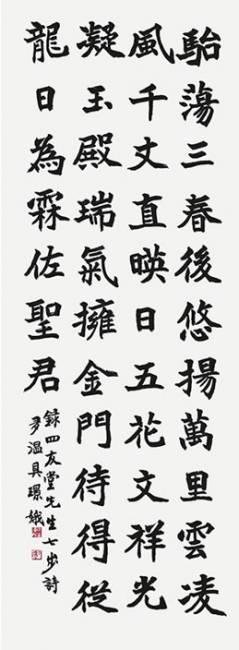 駘蕩三春後悠揚萬里雲凌
風千丈直暎日五花文祥光
凝玉殿瑞氣擁金門待得從
龍日為霖佐聖君
錄四友堂先生七步詩
溫具璟娥